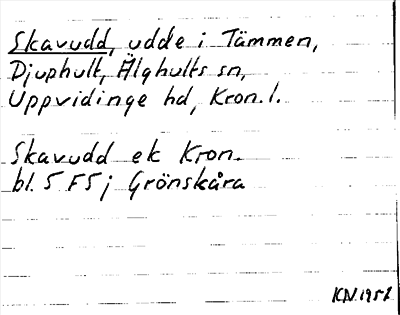 Skavudd, udde i Tämmen,
Djuphult, Älghults sn,
Uppvidinge hd, Kron. l.
Skavudd ek Kron.
bl. 5 F5 j Grönskåra